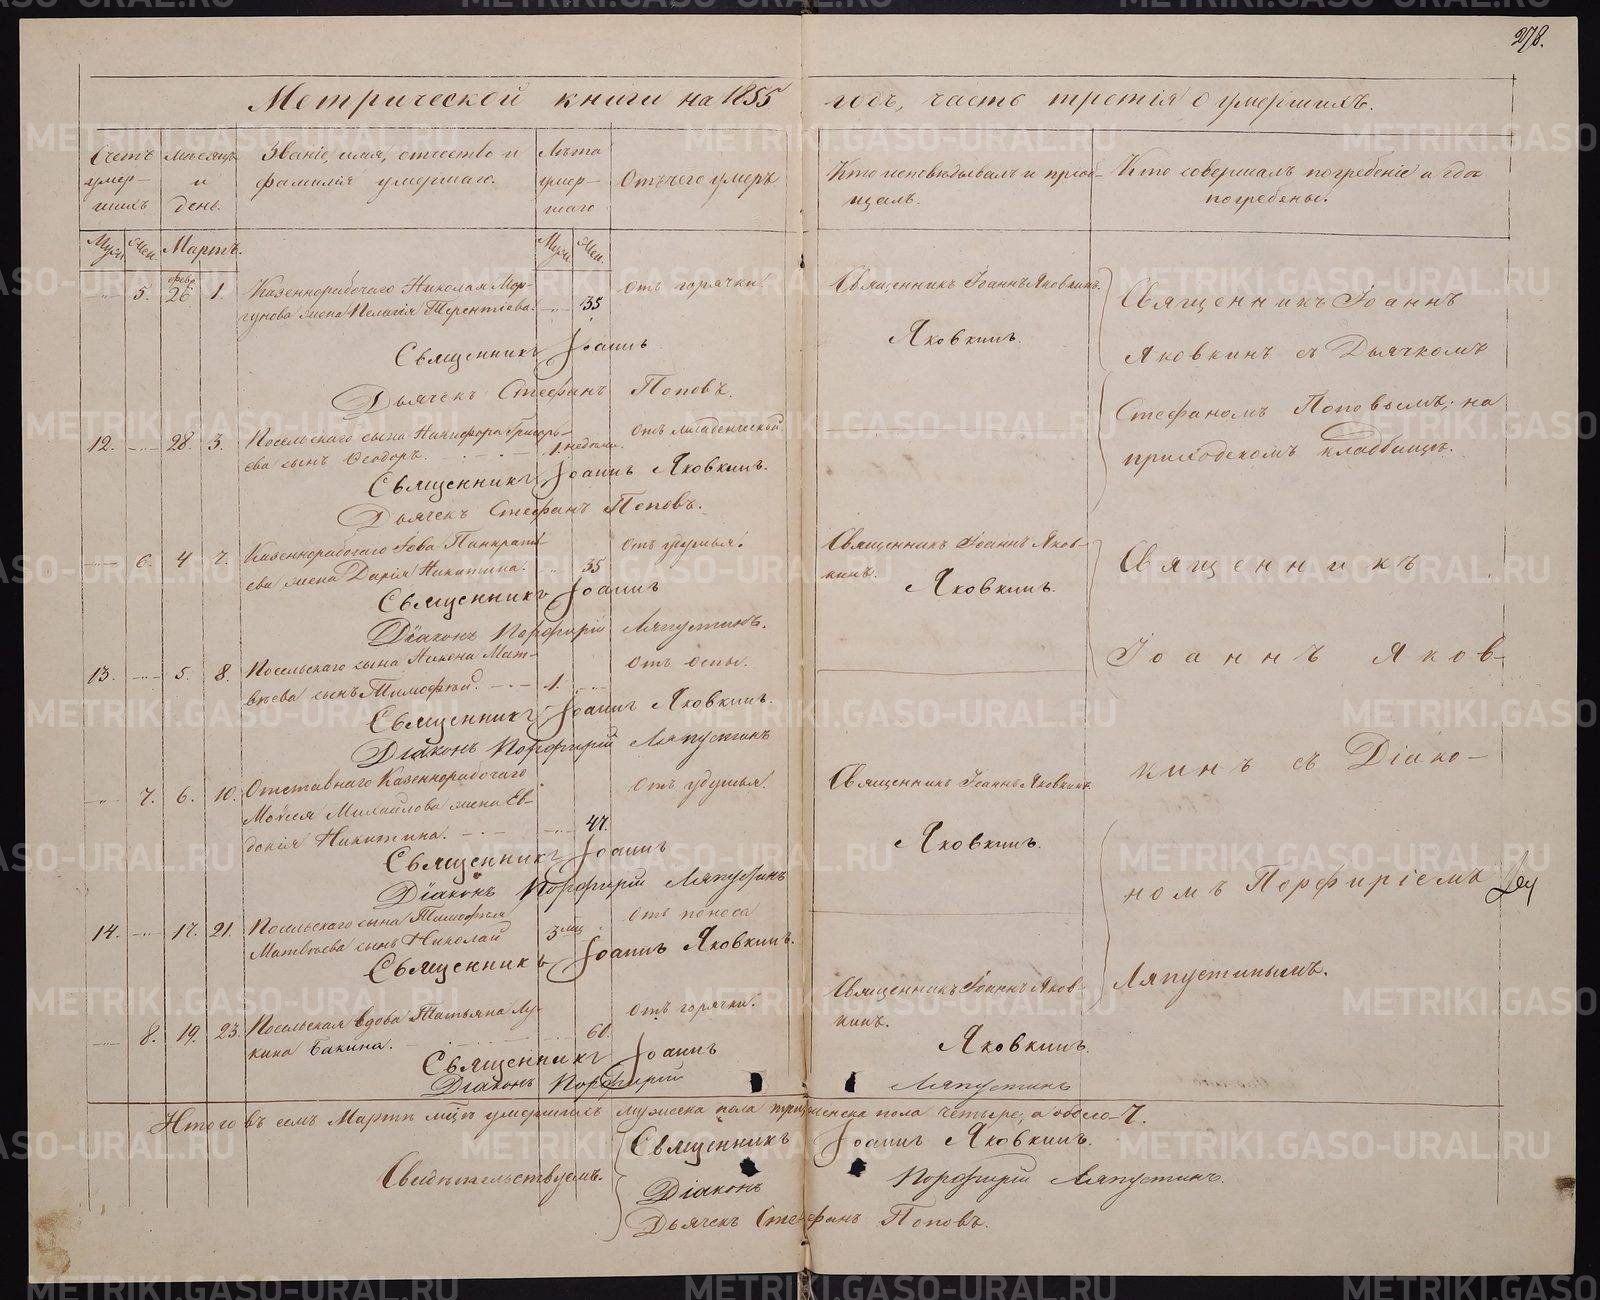 278.
Метрической книги на 1855 годъ, часть третія о умершихъ.
Счетъ умер-
шихъ
мѣсяцъ
и
день.
Званіе, имя, отчество и
фамилія умершаго.
Лѣта
умер-
шаго
Отъ чего умеръ
Кто исповѣдывалъ и пріоб-
щалъ.
Кто совершалъ погребеніе и гдѣ
погребены.
Муж. Жен. Мартъ. Муж. Жен.
5. февр. 26 1. Казеннорабочаго Николая Мор-
гунова жена Пелагія Терентіева. 35 отъ горячки
Священникъ Іоаннъ Яковкинъ.
Священникъ Іоаннъ
Яковкинъ.
Дьячекъ Стефанъ Поповъ.
12. 28. 3. Посельскаго сына Никифора Григорь-
ева сынъ Ѳеодоръ. 1. недели отъ младенческой
Священникъ Іоаннъ Яковкинъ.
Дьячекъ Стефанъ Поповъ.
Священникъ Іоаннъ
Яковкинъ съ Дьячкомъ
Стефаномъ Поповымъ; на
приходскомъ кладбищѣ.
6. 4 7. Казеннорабочаго Іова Панкрать-
ева жена Дарія Никитина. 35 отъ удушья.
Священникъ Іоаннъ Яков-
кинъ.
Священникъ Іоаннъ
Яковкинъ.
Діаконъ Порфирій Ляпустинъ.
13. 5. 8. Посельскаго сына Никона Мат-
вѣева сынъ Тимофѣй. 1. отъ оспы.
Священникъ Іоаннъ Яковкинъ.
Діаконъ Порфирій Ляпустинъ
7. 6. 10. Отставнаго Казеннорабочаго
Моѵсея Михайлова жена Ев-
докія Никитина. 47. отъ удушья.
Священникъ Іоаннъ Яковкинъ.
Священникъ Іоаннъ
Яковкинъ.
Діаконъ Порфирій Ляпустинъ
14. 17. 21. Посельскаго сына Тимофея
Матвѣева сынъ Николай 3 мц отъ поноса
Священникъ Іоаннъ Яковкинъ.
8. 19. 23. Посельская вдова Татьяна Лу-
кина Бакина. 60. отъ горячки.
Священникъ Іоаннъ Яков-
кинъ.
Священникъ Іоаннъ
Яковкинъ.
Діаконъ Порфирій Ляпустинъ
Священникъ
Іоаннъ Яков-
кинъ съ Діако-
номъ Порфиріемъ
Ляпустинымъ.
Итого въ семъ Мартѣ мцѣ умершихъ мужеска пола три, женска пола четыре, а обоего 7.
Свидѣтельствуемъ.
Священникъ Іоаннъ Яковкинъ.
Діаконъ Порфирій Ляпустинъ.
Дьячекъ Стефанъ Поповъ.
METRIKI.GASO-URAL.RU